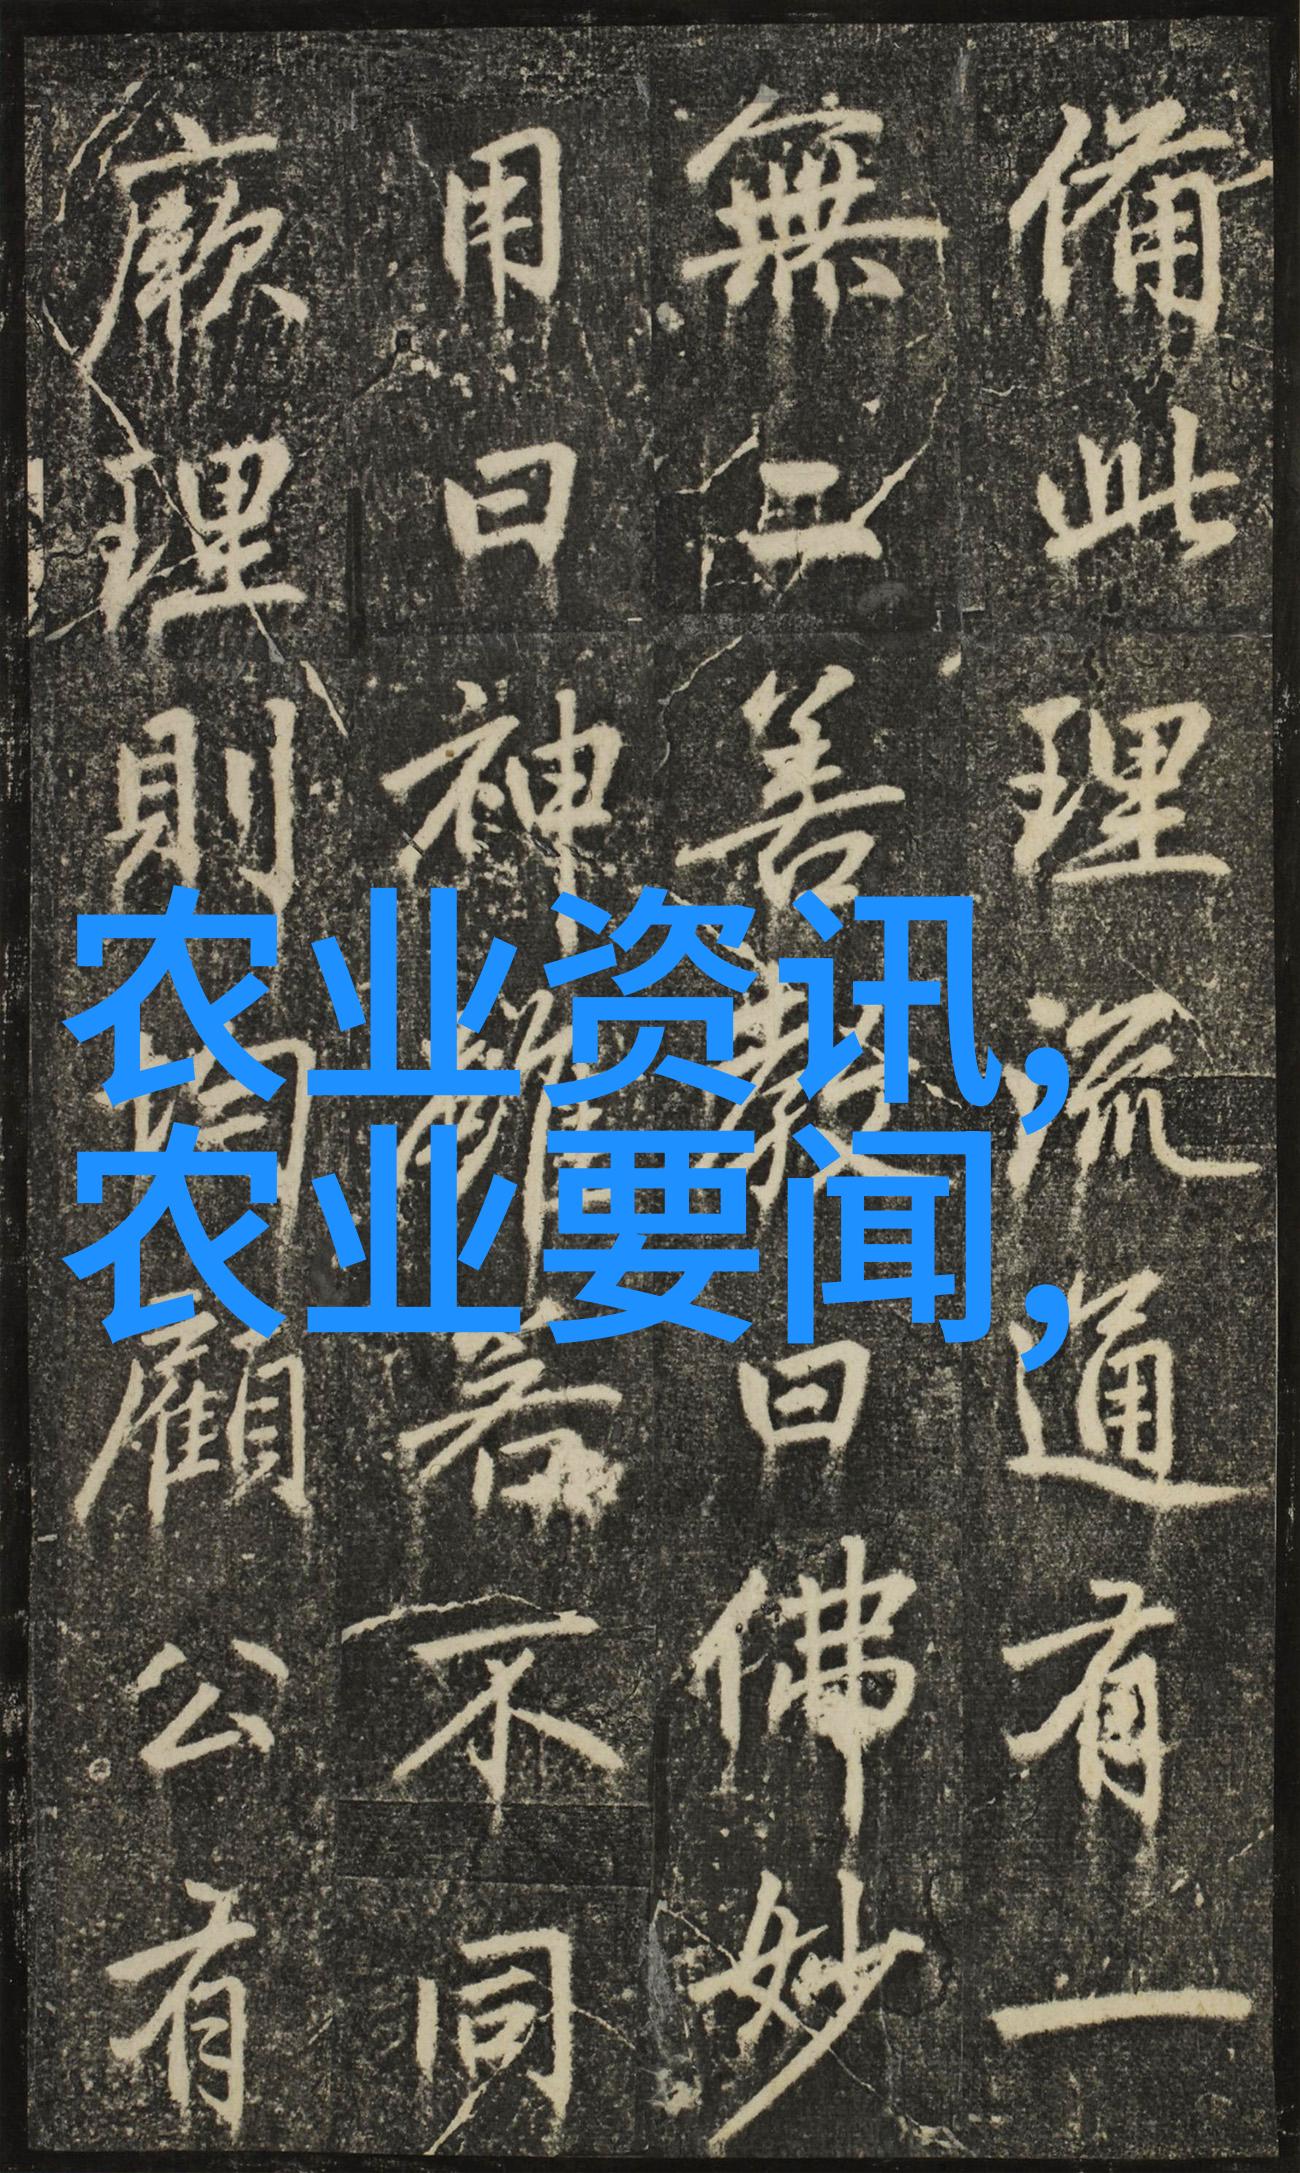 備此理流通有一
無二善教曰佛妙
用曰神雖若不同
厥理則均顧公有
农业资讯,
农业要闻,